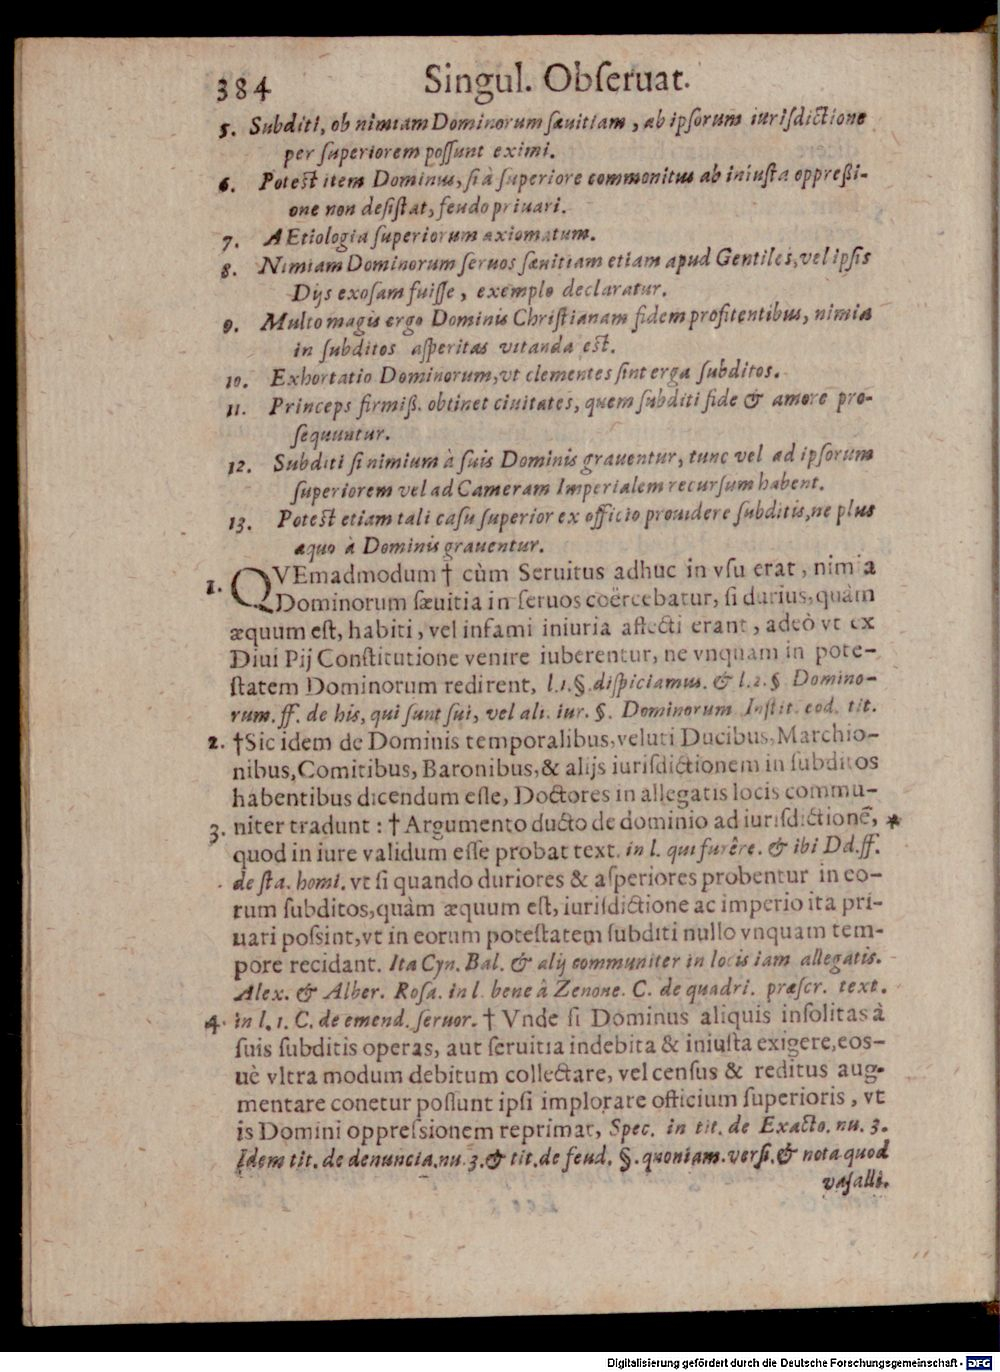 384 Singul. Obſeruat.
5. Subditi, ob nimiam Dominorum ſæuitiam, ab ipſorum iuriſdictione
per ſuperiorem poſſunt eximi.
6. Potest item Dominus, ſi à ſuperiore commonitus ab iniuſta oppreßi-
one non deſiſtat, feudo priuari.
7. AEtiologia ſuperiorum axiomatum.
8. Nimiam Dominorum ſeruos ſæuitiam etiam apud Gentiles, vel ipſis
Dijs exoſam fuiſſe, exemplo declaratur.
9. Multo magis ergo Dominis Chriſtianam fidem profitentibus, nimia
in ſubditos aſperitas vitanda est.
10. Exhortatio Dominorum, vt clementes ſint erga ſubditos.
11. Princeps firmiß. obtinet ciuitates, quem ſubditi fide & amore pro-
ſequuntur.
12. Subditi ſi nimium à ſuis Dominis grauentur, tunc vel ad ipſorum
ſuperiorem vel ad Cameram Imperialem recurſum habent.
13. Potest etiam tali caſu ſuperior ex officio prouidere ſubditis, ne plus
æquo à Dominis grauentur.
1. QVEmadmodum † cùm Seruitus adhuc in vſu erat, nimia
Dominorum ſæuitia in ſeruos coërcebatur, ſi durius, quàm
æquum eſt, habiti, vel infami iniuria affecti erant, adeò vt ex
Diui Pij Conſtitutione venire iuberentur, ne vnquam in pote-
ſtatem Dominorum redirent, l. 1. §. diſpiciamus. & l. 2. § Domino-
rum. ff. de his, qui ſunt ſui, vel ali. iur. §. Dominorum Inſtit. eod. tit.
2. †Sic idem de Dominis temporalibus, veluti Ducibus, Marchio-
nibus, Comitibus, Baronibus, & alijs iuriſdictionem in ſubditos
habentibus dicendum eſſe, Doctores in allegatis locis commu-
3. niter tradunt: † Argumento ducto de dominio ad iuriſdictionẽ, *
quod in iure validum eſſe probat text. in l. qui furêre. & ibi Dd. ff.
de ſta. homi. vt ſi quando duriores & aſperiores probentur in eo-
rum ſubditos, quàm æquum eſt, iuriſdictione ac imperio ita pri-
uari poſsint, vt in eorum poteſtatem ſubditi nullo vnquam tem-
pore recidant. Ita Cyn. Bal. & alij communiter in locis iam allegatis.
Alex. & Alber. Roſa. in l. bene à Zenone. C. de quadri. præſcr. text.
4. in l. 1. C. de emend. ſeruor. † Vnde ſi Dominus aliquis inſolitas à
ſuis ſubditis operas, aut ſeruitia indebita & iniuſta exigere, eos-
uè vltra modum debitum collectare, vel cenſus & reditus aug-
mentare conetur poſſunt ipſi implorare officium ſuperioris, vt
is Domini oppreſsionem reprimat, Spec. in tit. de Exacto. nu. 3.
Idem tit. de denuncia. nu. 3. & tit. de feud. §. quoniam. verſi. & nota quod
vaſalli.
Digitalisierung gefördert durch die Deutsche Forschungsgemeinschaft - DFG